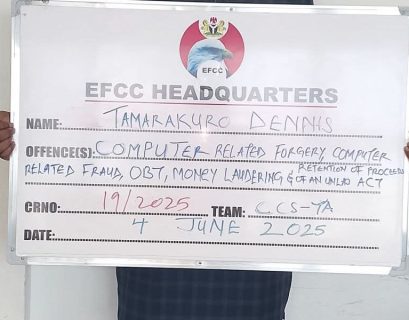 EFCC
EFCC HEADQUARTERS
NAME: TAMARAKURO DENNIS
OFFENCE(S): COMPUTER RELATED FORGERY, COMPUTER
RELATED FRAUD, OBT, MONEY LAUDERING & RETENTION OF PROCEEDS OF AN UNLAD ACT
CRNO: 19/2025 TEAM: CCS-YA
DATE: 4 JUNE 2025